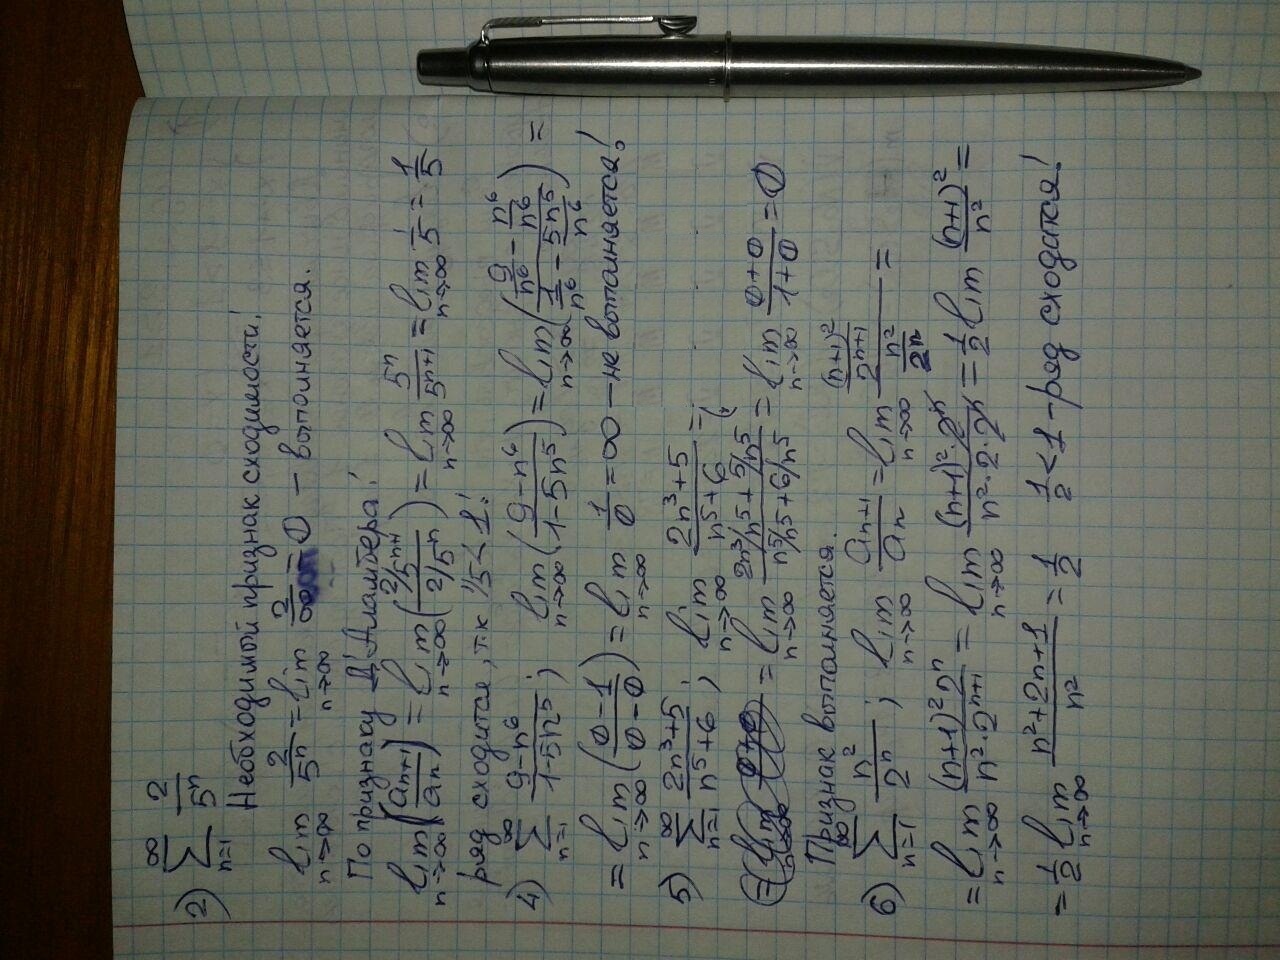 2) ∞ ∑ n=1 2/5ⁿ
Необходимой признак сходимости!
lim n→∞ 2/5ⁿ = lim n→∞ 2/∞ = 0 – выполняется.
По признаку Д'Аламбера!
lim n→∞ (aₙ₊₁/aₙ) = lim n→∞ ((2/5ⁿ⁺¹)/(2/5ⁿ)) = lim n→∞ 5ⁿ/5ⁿ⁺¹ = lim n→∞ 1/5 = 1/5
ряд сходится, т.к 1/5 < 1!
4) ∞ ∑ n=1 (9-n⁶)/(1-5n⁵); lim n→∞ ((9-n⁶)/(1-5n⁵)) = lim n→∞ ((9/n⁶ - n⁶/n⁶)/(1/n⁶ - 5n⁵/n⁶)) =
= lim n→∞ ((0-1)/(0-0)) = lim n→∞ 1/0 = ∞ – не выполняется!
5) ∞ ∑ n=1 (2n³+5)/(n⁵+6); lim n→∞ (2n³+5)/(n⁵+6) =
= lim n→∞ (2n³/n⁵ + 5/n⁵)/(n⁵/n⁵ + 6/n⁵) = lim n→∞ (0+0)/(1+0) = 0
Признак выполняется.
6) ∞ ∑ n=1 n²/2ⁿ; lim n→∞ aₙ₊₁/aₙ = lim n→∞ ((n+1)²/2ⁿ⁺¹)/(n²/2ⁿ) =
= lim n→∞ (n+1)² 2ⁿ/(n²·2ⁿ⁺¹) = lim n→∞ (n+1)²·2ⁿ/(n²·2·2ⁿ) = 1/2 lim (n+1)²/n² =
= 1/2 lim n→∞ (n²+2n+1)/n² = 1/2 1/2 < 1 - ряд сходится!